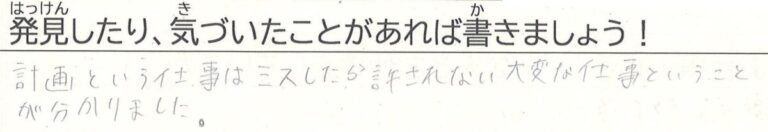 はっけん き か
発見したり、気づいたことがあれば書きましょう！
計画という仕事はミスしたら許されない大変な仕事ということ
が分かりました。